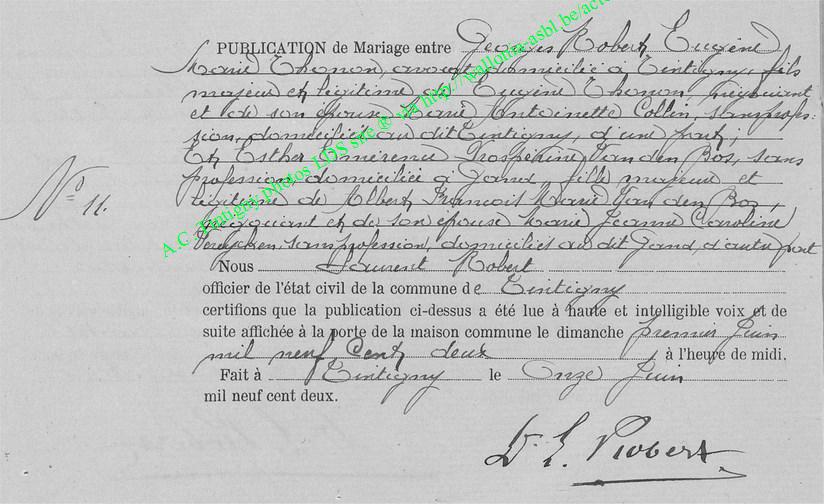 PUBLICATION de Mariage entre Georges Robert Eugène
Marie Thonon, avocat, domicilié à Tintigny, fils
majeur et légitime de Eugène Thonon, négociant
et de son épouse Marie Antoinette Collin, sans profes-
sion, domiciliés au dit Tintigny, d'une part;
Et Esther Emérence Prosperine Van den Bos, sans
profession, domiciliée à Gand, fille majeure et
légitime de Albert François Marie Van den Bos,
négociant et de son épouse Marie Jeanne Caroline
sans profession, domiciliés au dit Gand, d'autre part
N° 11.
Nous Laurent Robert
officier de l'état civil de la commune de Tintigny
certifions que la publication ci-dessus a été lue à haute et intelligible voix et de
suite affichée à la porte de la maison commune le dimanche premier Juin
mil neuf Cent deux, à l'heure de midi.
Fait à Tintigny le Onze Juin
mil neuf cent deux.
Dr. L. Robert
A.C. Tintigny photos LDS site ® via http://wallonia-asbl.be/ac